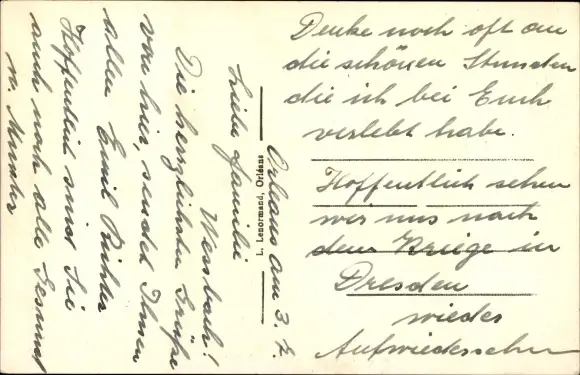 Orleans am 3. 7.
Liebe Familie
Wessbach!
Die herzlichsten Grüße
von hier, sendet Ihnen
allen Emil Richter
Hoffentlich sind Sie
auch noch alle Gesund
u. Munter
L. Lenormand, Orléans
Denke noch oft an
die schönen Stunden
die ich bei Euch
verlebt habe.
Hoffentlich sehen
wir uns nach
dem Kriege in
Dresden
wieder
Aufwiedersehen